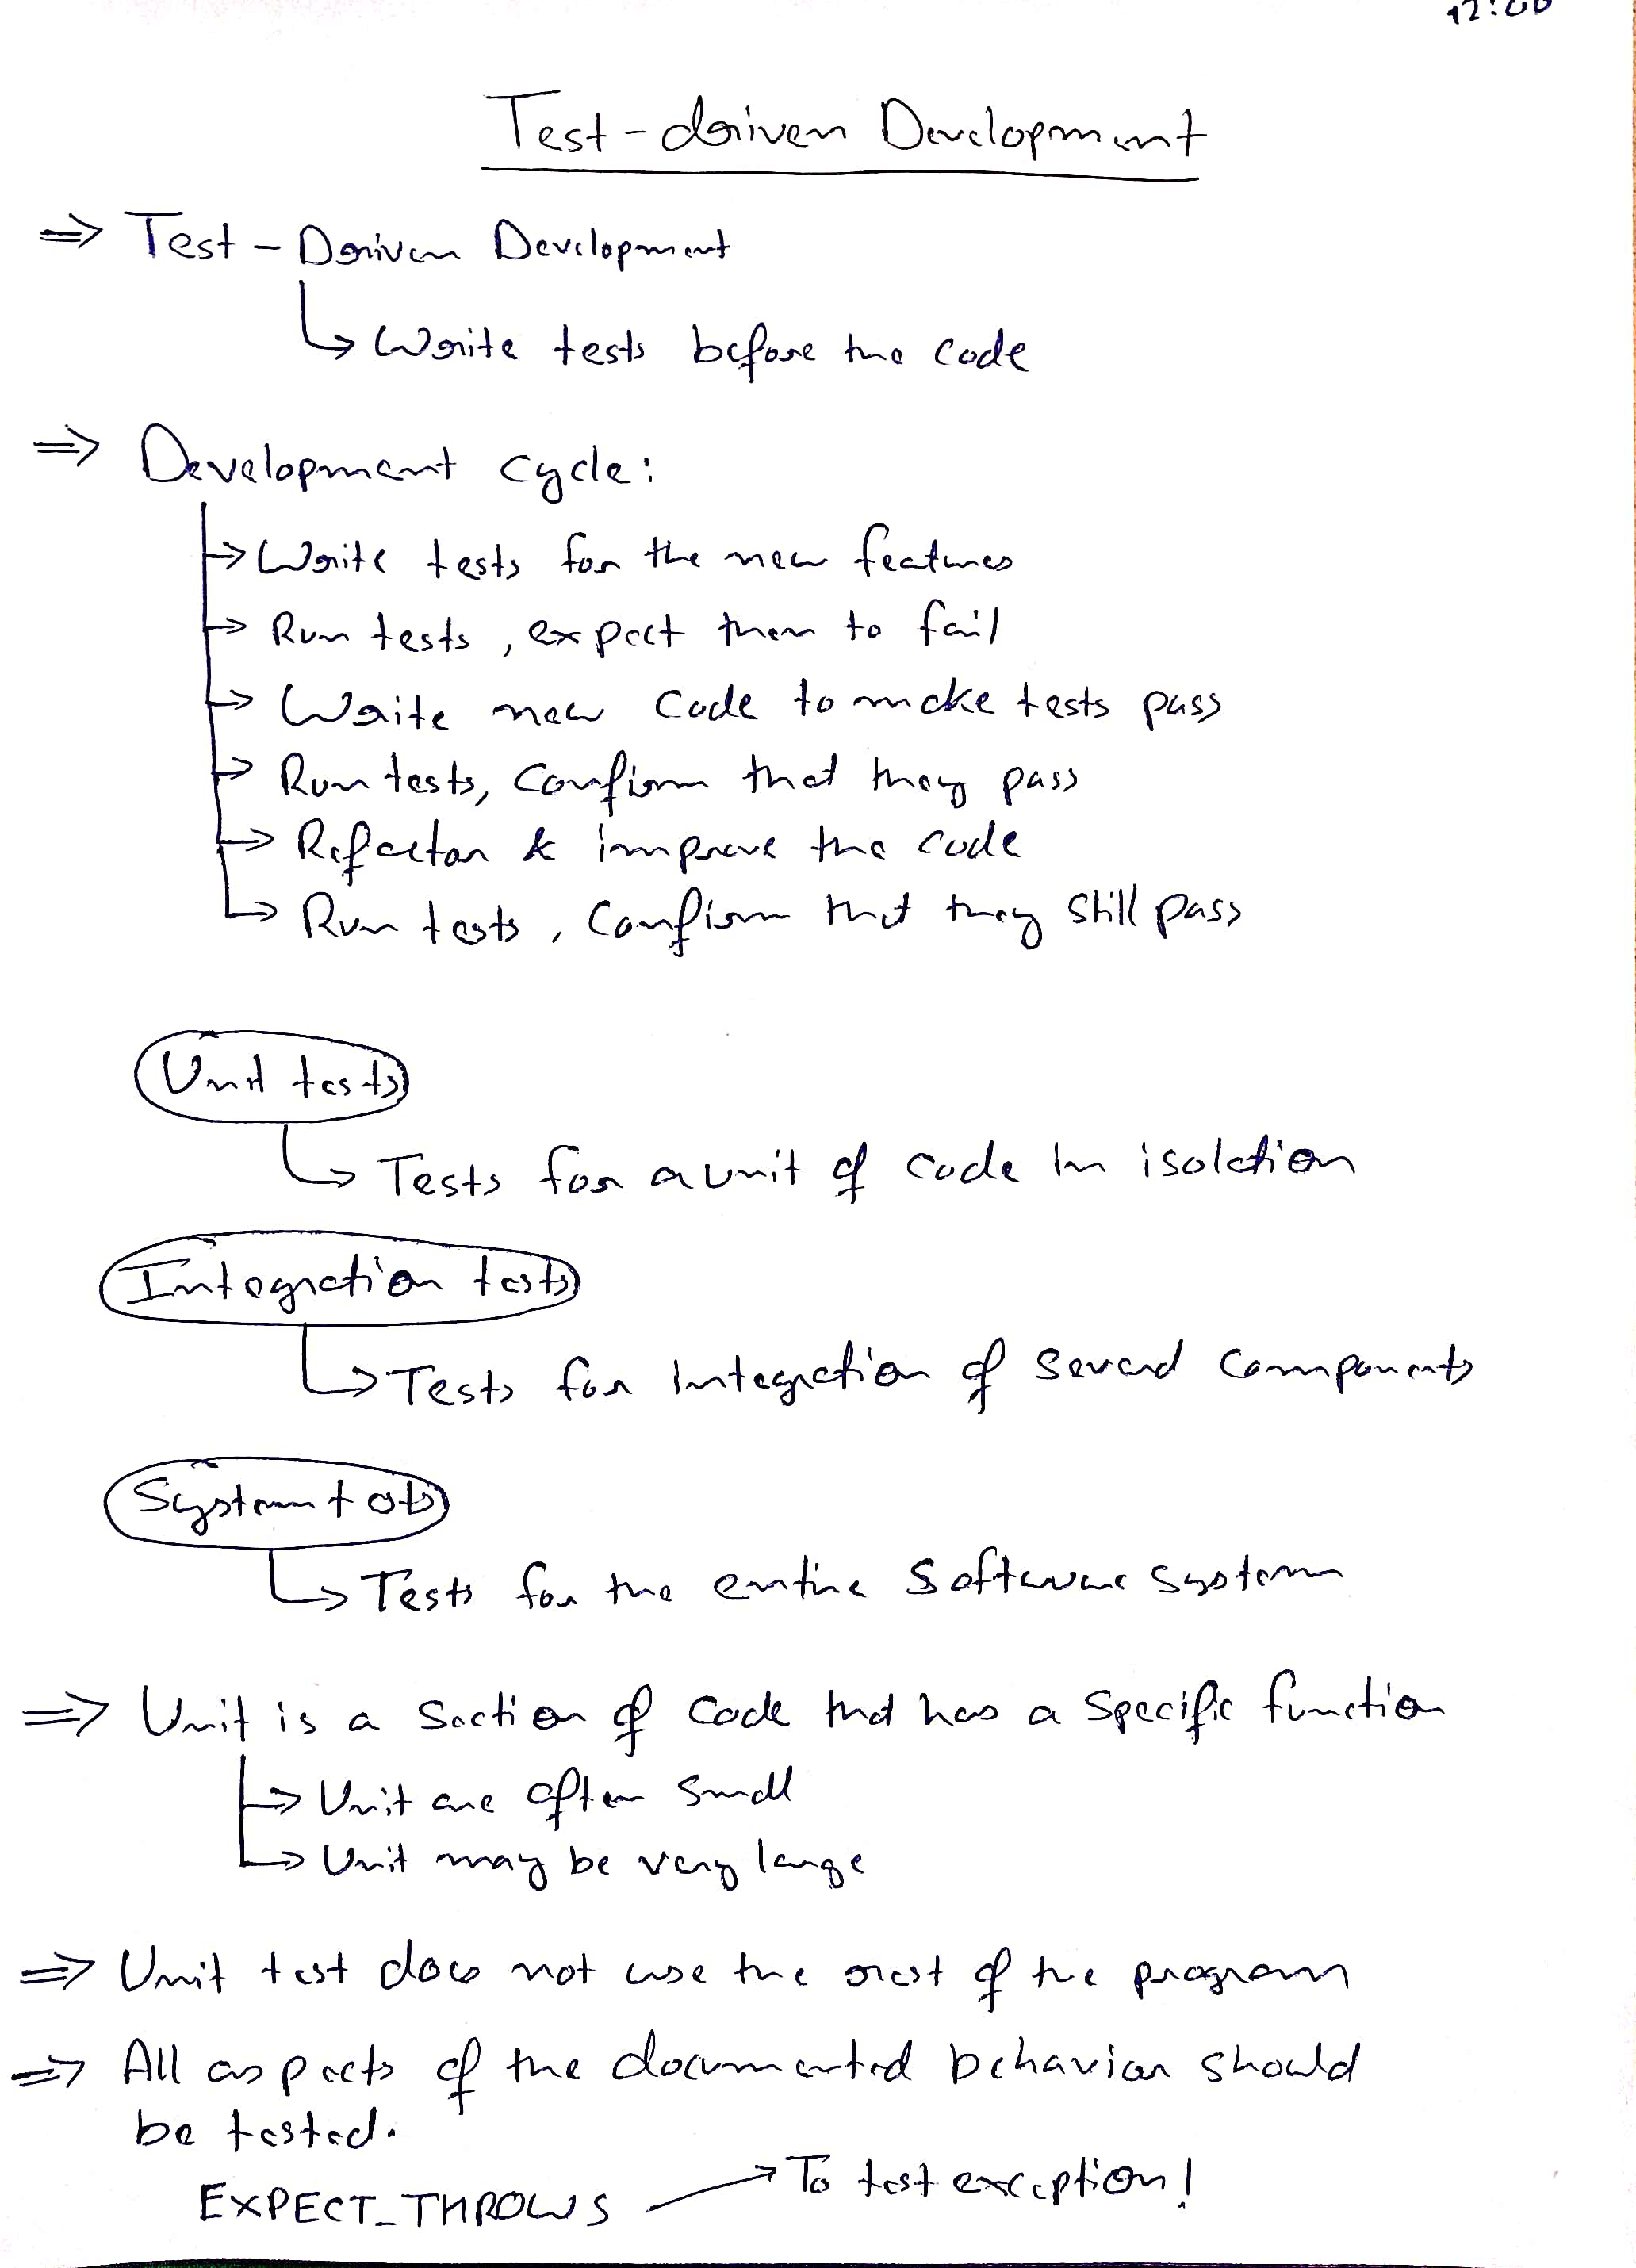 Test-driven Development
⇒ Test-Driven Development
↳ Write tests before the code
⇒ Development cycle:
→ Write tests for the new features
→ Run tests, expect them to fail
→ Write new code to make tests pass
→ Run tests, Confirm that they pass
→ Refactor & improve the code
→ Run tests, Confirm that they still pass
Unit tests
↳ Tests for a unit of code in isolation
Integration tests
↳ Tests for Integration of Several Components
System tests
↳ Tests for the entire Software system
⇒ Unit is a Section of Code that has a Specific function
→ Unit are often small
→ Unit may be very large
⇒ Unit test does not use the rest of the program
⇒ All aspects of the documented behavior should
be tested.
EXPECT_THROWS → To test exception!